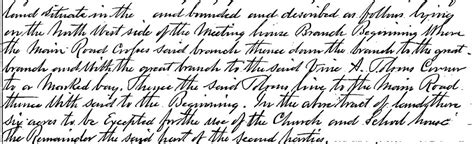 land situate in the and bounded and described as follows lying
on the North West side of the Meeting house Branch Beginning Where
the Main Road Crosses said branch thence down the branch to the great
branch and With the great branch to the said A. Corner
to a Marked bay, Thence the said line to the Main Road
thence With said to the Beginning. In the above tract of land there
six acres to be Excepted for the use of the Church and School house
the Remainder the said part of the second parties.